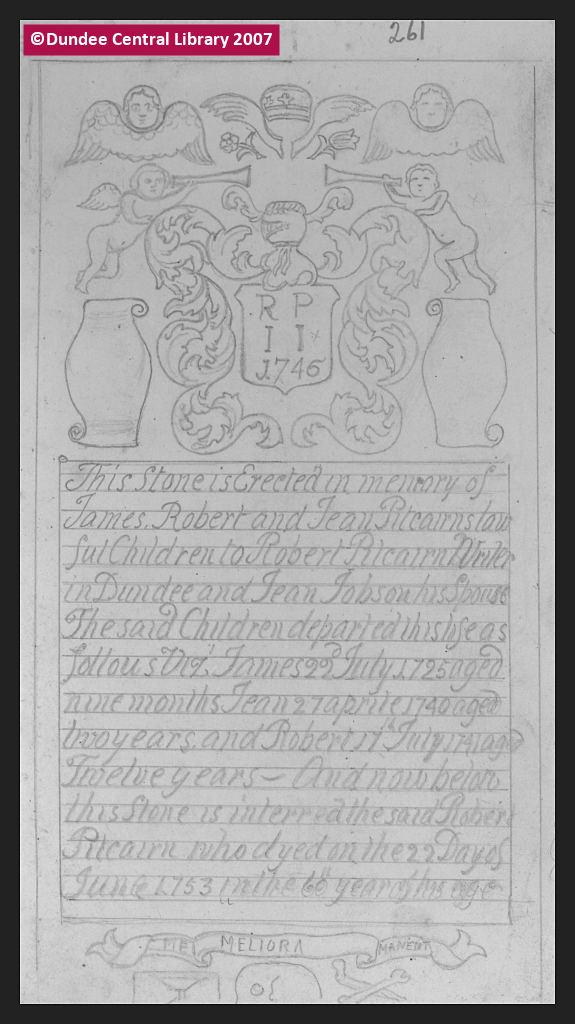 ©Dundee Central Library 2007
261
R P
I I
1746
This Stone is Erected in memory of
James, Robert and Jean Pitcairns law
ful Children to Robert Pitcairn Writer
in Dundee and Jean Jobson his Spouse
The said Children departed this life as
follows Viz.t James 22d July 1725 aged
nine months Jean 27 aprile 1740 aged
two years and Robert 17th July 1741 aged
Twelve years – And now below
this Stone is interred the said Robert
Pitcairn who dyed on the 22 Day of
June 1753 in the year of his age
ME MELIORA MANENT